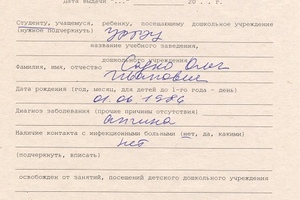 Дата выдачи "..." 20 . . г.
Студенту, учащемуся, ребенку, посещавшему дошкольное учреждение
(нужное подчеркнуть) УрГЭУ
название учебного заведения,
дошкольного учреждения
Фамилия, имя, отчество Сапко Олег
Иванович
Дата рождения (год, месяц, для детей до 1-го года - день)
01.06 1986
Диагноз заболевания (прочие причины отсутствия)
ангина
Наличие контакта с инфекционными больными (нет, да, какими)
нет
(подчеркнуть, вписать)
освобожден от занятий, посещений детского дошкольного учреждения